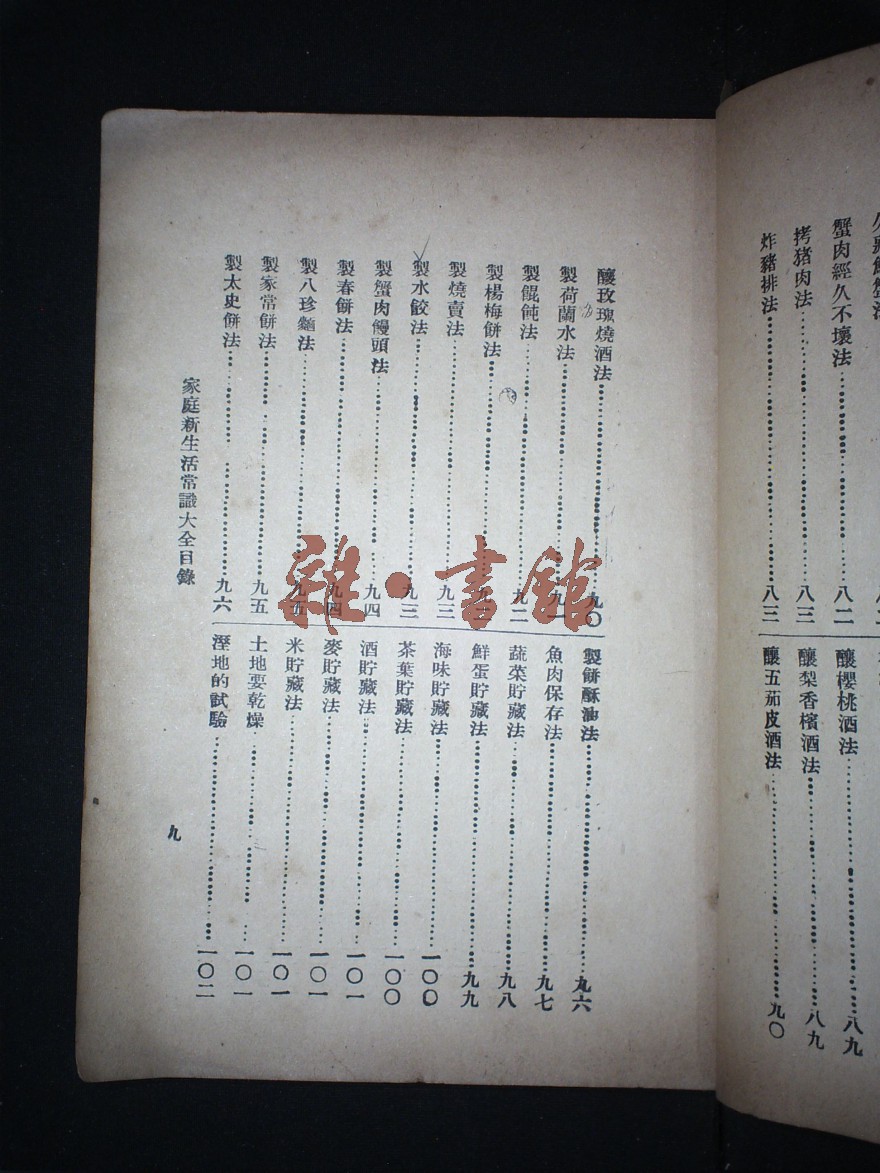 蟹肉經久不壞法……八二
拷猪肉法……八三
炸豬排法……八三
釀櫻桃酒法……八九
釀梨香檳酒法……八九
釀五茄皮酒法……九〇
釀玫瑰燒酒法……九〇
製荷蘭水法……九一
製餛飩法……九二
製楊梅餅法……九二
製燒賣法……九三
製水餃法……九三
製蟹肉饅頭法……九四
製春餅法……九四
製八珍麵法……九五
製家常餅法……九五
製太史餅法……九六
製餅酥油法……九六
魚肉保存法……九七
蔬菜貯藏法……九八
鮮蛋貯藏法……九九
海味貯藏法……一〇〇
茶葉貯藏法……一〇〇
酒貯藏法……一〇一
麥貯藏法……一〇一
米貯藏法……一〇一
土地要乾燥……一〇一
溼地的試驗……一〇二
家庭新生活常識大全目錄
九
雜·書館